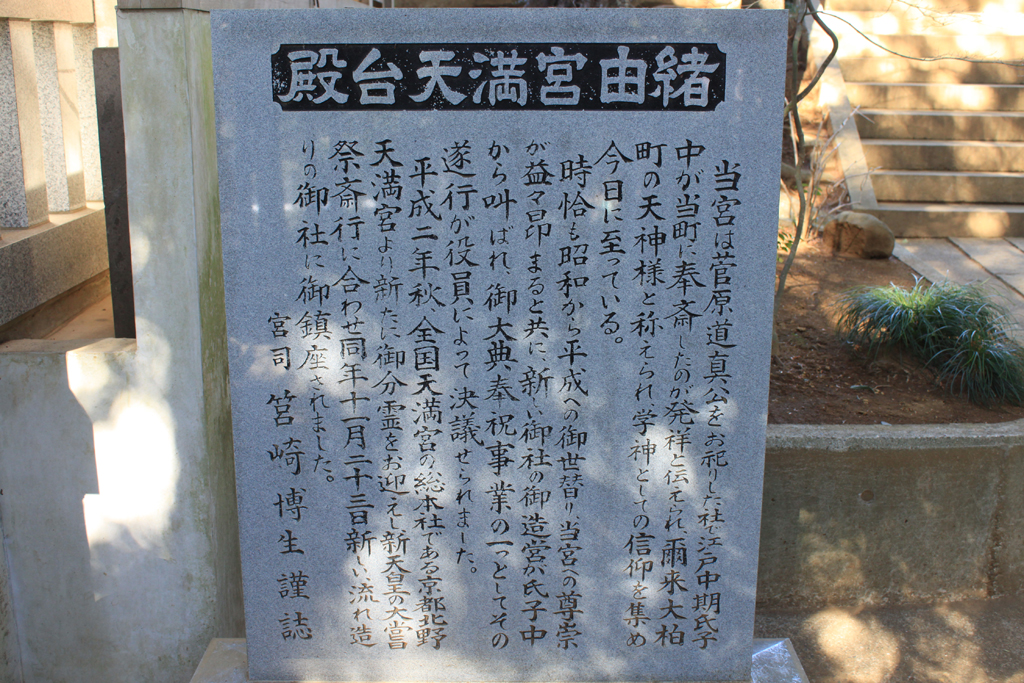 殿台天満宮由緒
当宮は菅原道真公をお祀りした社で江戸中期氏子
中が当町に奉斎したのが発祥と伝えられ爾来大柏
町の天神様と称えられ、学神としての信仰を集め
今日に至っている。
時恰も昭和から平成への御世替り、当宮への尊崇
が益々昂まると共に、新しい御社の御造営が氏子中
から叫ばれ、御大典奉祝事業の一つとしてその
遂行が役員によって決議せられました。
平成二年秋、全国天満宮の総本社である京都北野
天満宮より新たに御分霊をお迎えし新天皇の大嘗
祭斎行に合わせ同年十一月二十三日新しい流れ造
りの御社に御鎮座されました。
宮司 筥崎博生 謹誌